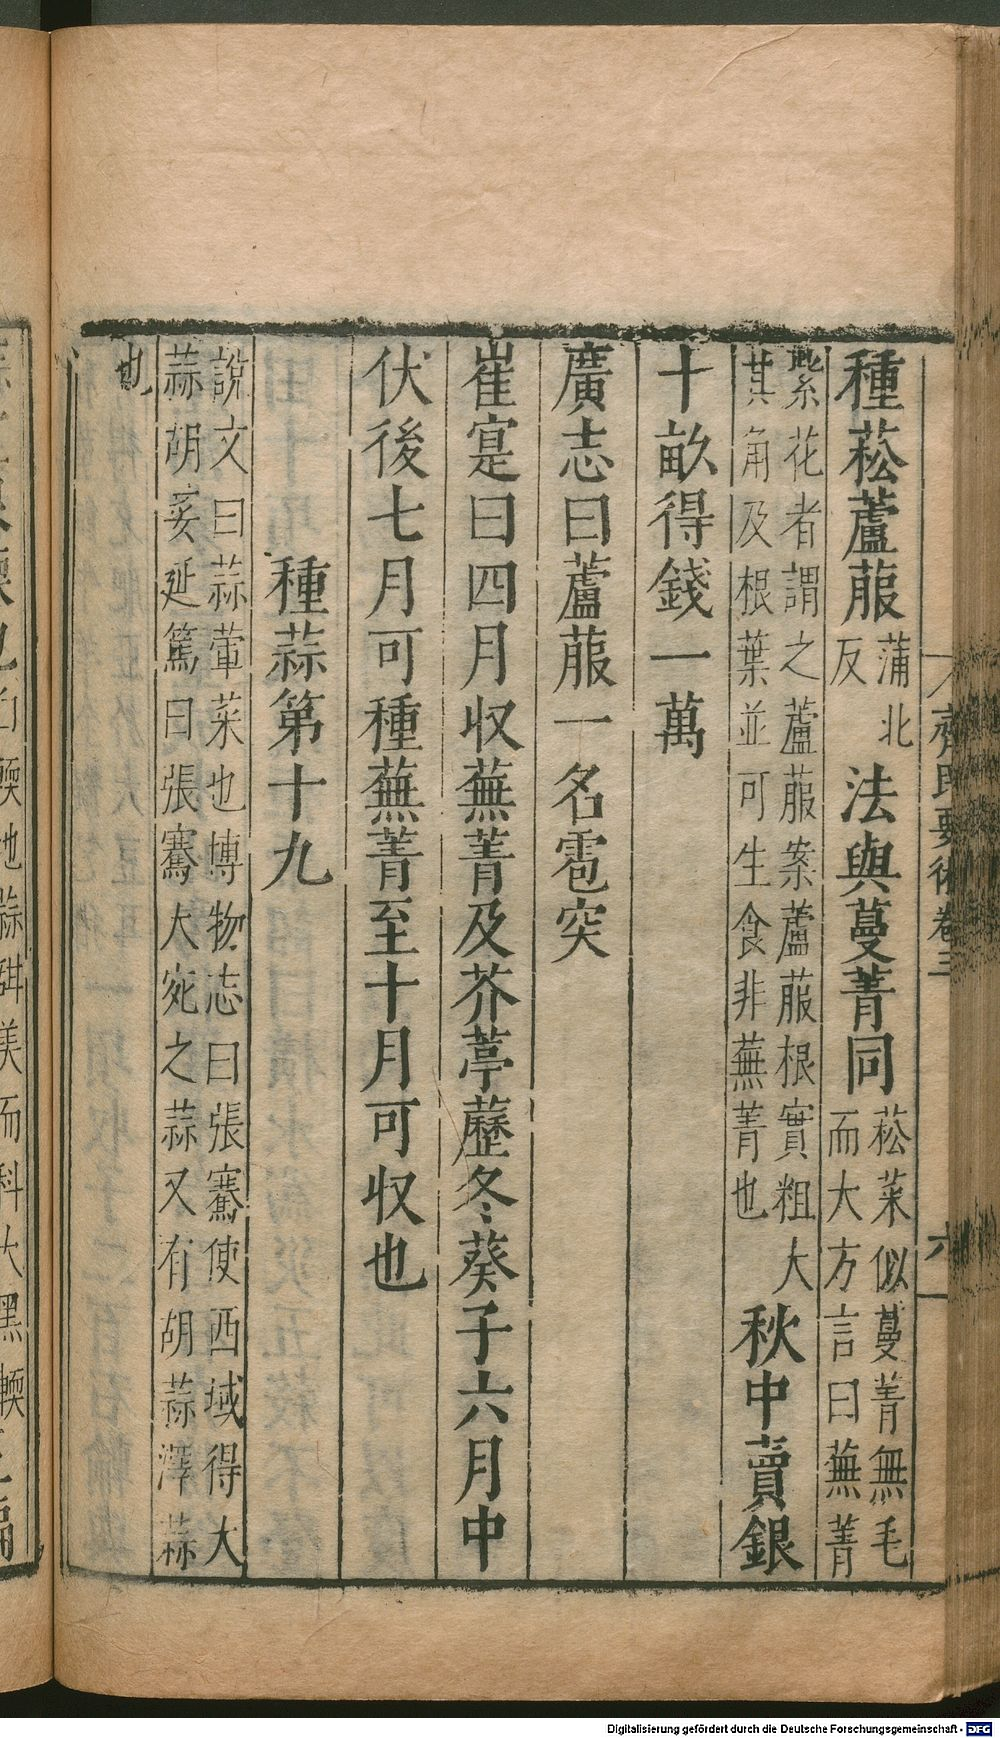 齊民要術卷三
六
種菘蘆菔蒲北反法與蔓菁同菘菜似蔓菁無毛而大方言曰蕪菁
紫花者謂之蘆菔案蘆菔根實粗大其角及根葉並可生食非蕪菁也秋中賣銀
十畝得錢一萬
廣志曰蘆菔一名雹突
崔寔曰四月收蕪菁及芥葶藶冬葵子六月中
伏後七月可種蕪菁至十月可收也
種蒜第十九
說文曰蒜葷菜也博物志曰張騫使西域得大
蒜胡荽延篤曰張騫大宛之蒜又有胡蒜澤蒜
也
Digitalisierung gefördert durch die Deutsche Forschungsgemeinschaft - DFG